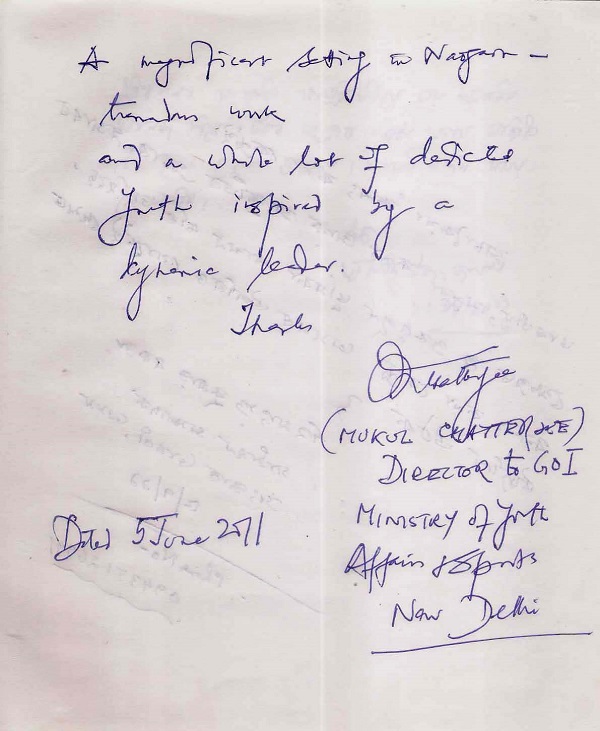 A magnificent setting in Nayan —
tremendous work
and a whole lot of dedicated
youth inspired by a
dynamic leader.
Thanks
Chatterjee
(MUKUL CHATTERJEE)
DIRECTOR to GOI
MINISTRY of Youth
Affairs & Sports
New Delhi
Dated 5 June 2011